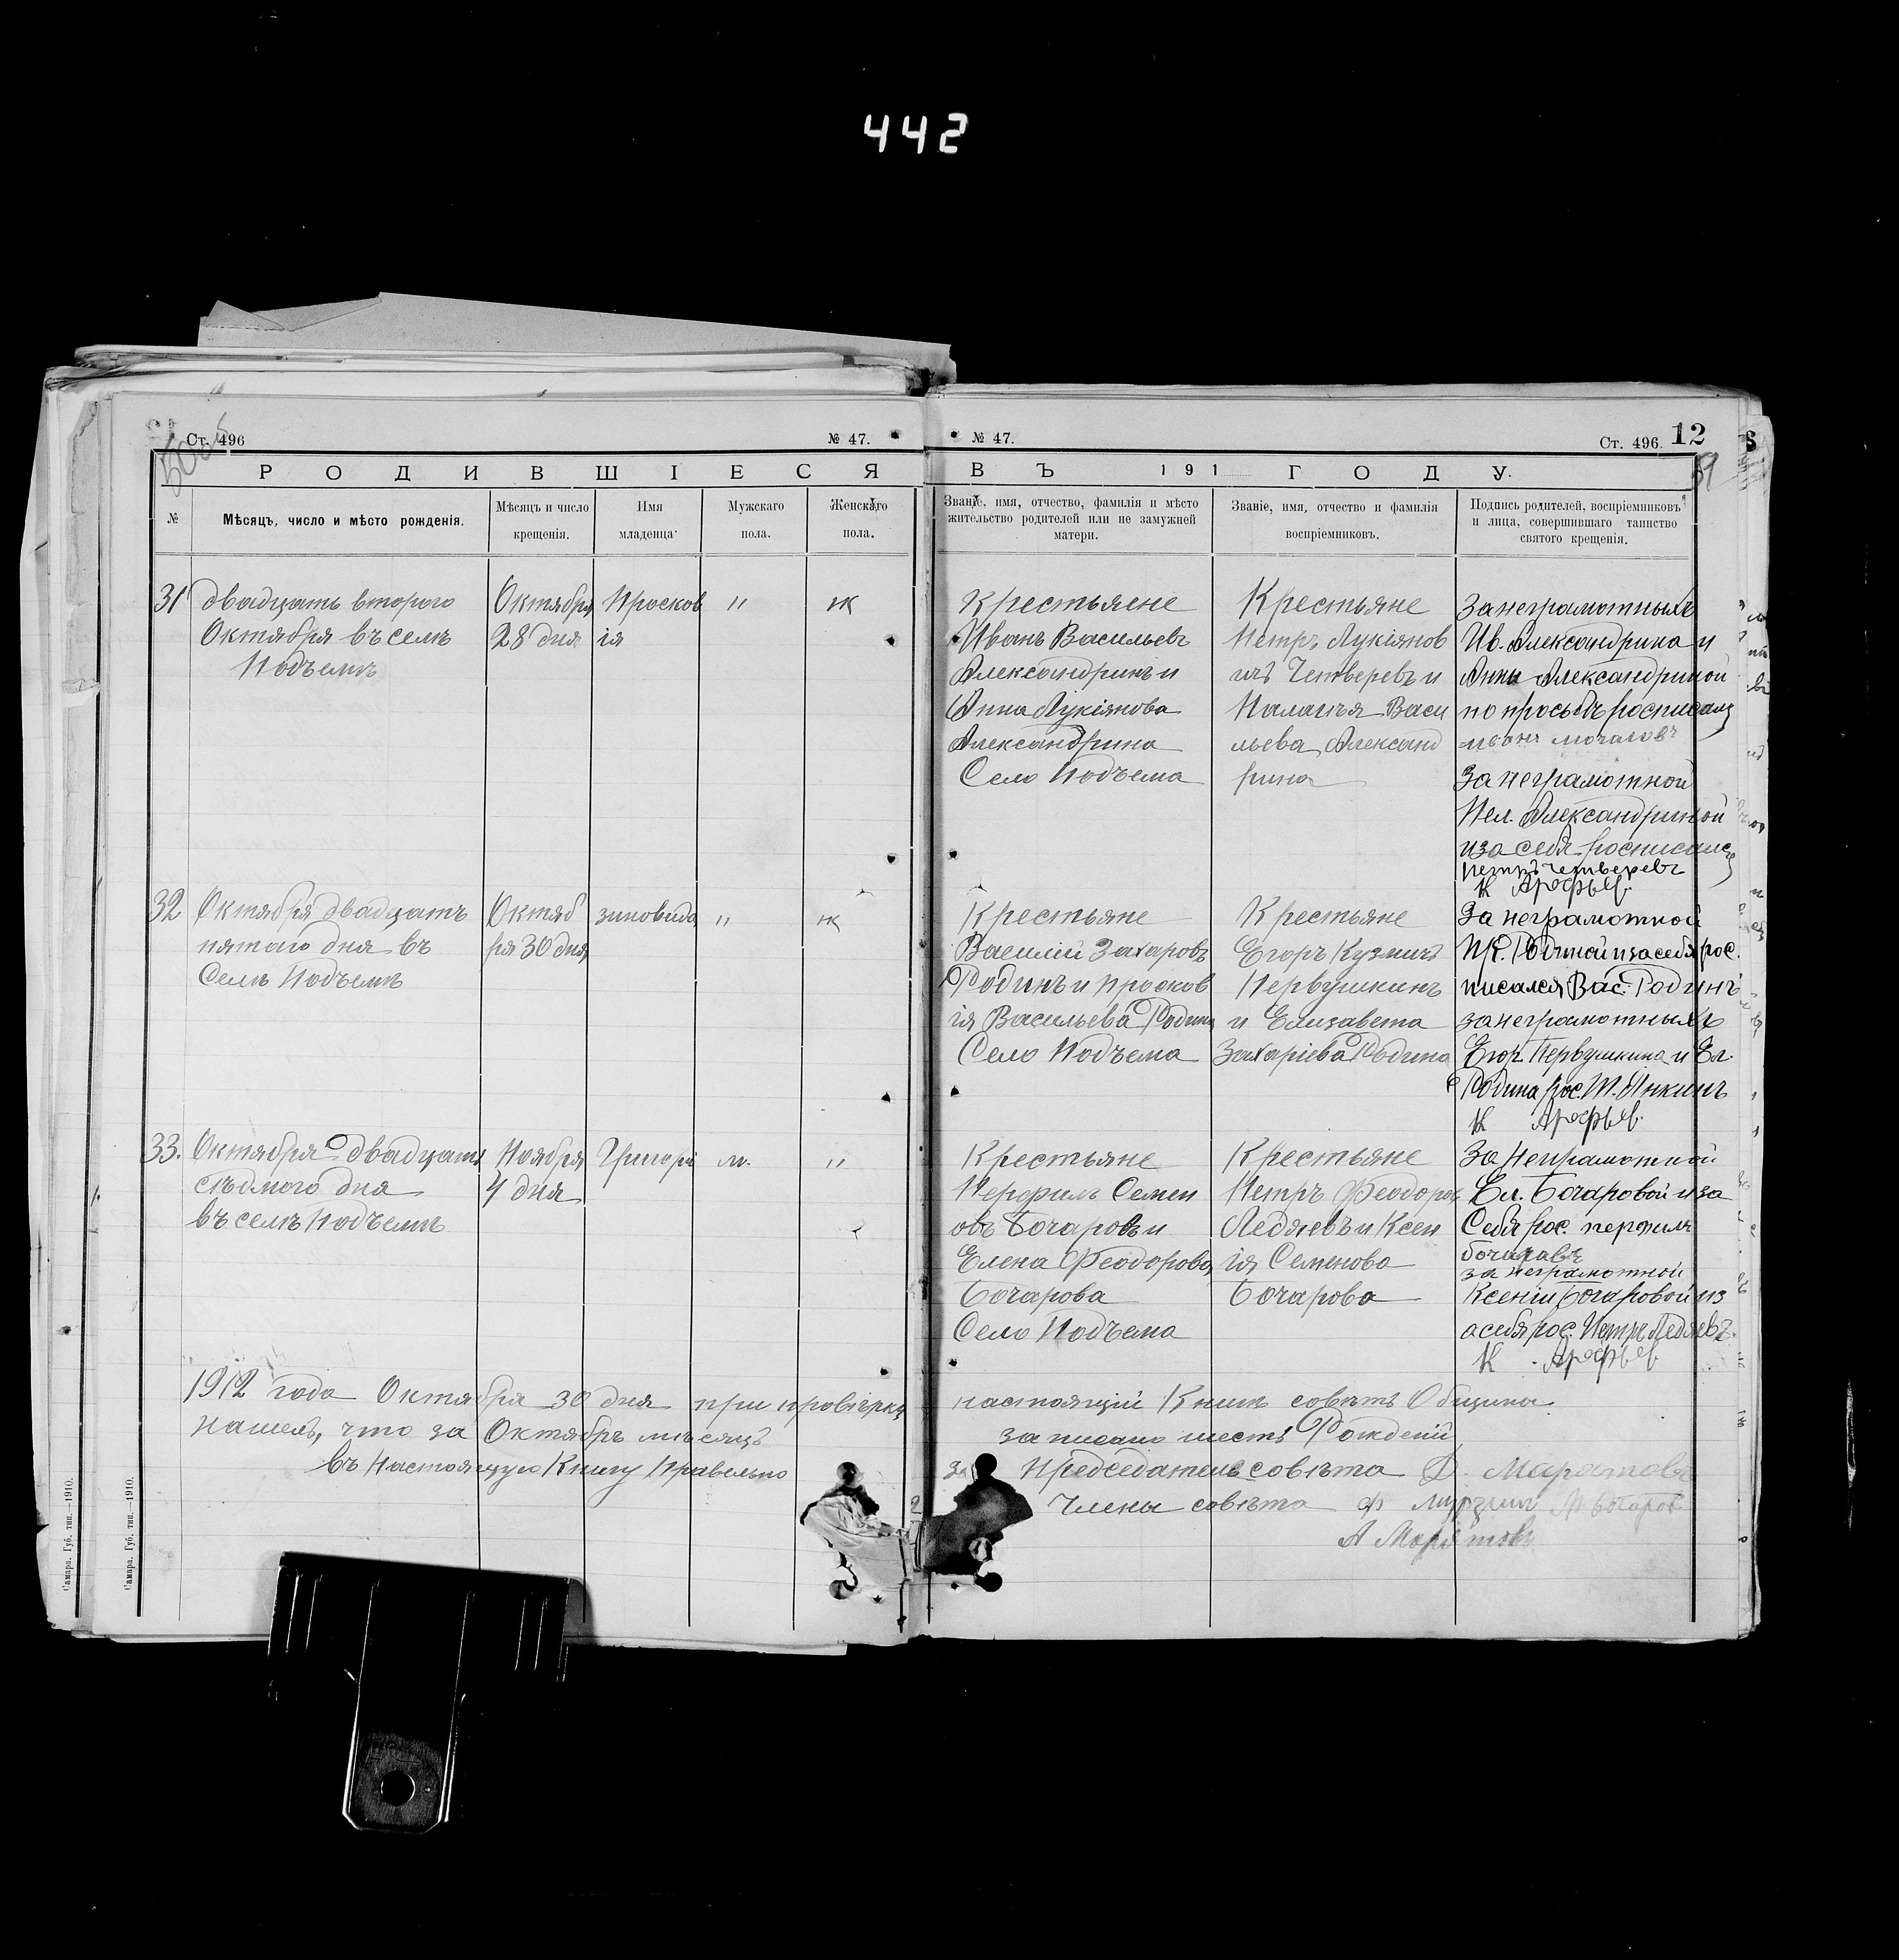 442
Ст. 496
№ 47.
№ 47.
Ст. 496.
12
РОДИВШІЕСЯ
ВЪ 191 ГОДУ.
№
Мѣсяцъ, число и мѣсто рожденія.
Мѣсяцъ и число
крещенія.
Имя
младенца
Мужскаго
пола.
Женскаго
пола.
Званіе, имя, отчество, фамилія и мѣсто
жительство родителей или не замужней
матери.
Званіе, имя, отчество и фамилія
воспріемниковъ.
Подпись родителей, воспріемниковъ
и лица, совершившаго таинство
святого крещенія.
31
двадцать второго
Октября въ селѣ
Подъемѣ
Октября
28 дня
Просков
ія
"
ж
Крестьяене
Иванъ Васильевъ
Александринъ и
Анна Лукіянова
Александрина
Село Подъема
Крестьяне
Петръ Лукіянов
ичъ Четверевъ и
Палагѣя Васи
льева Александ
рина
За неграмотныхъ
Ив. Александрина и
Анны Александриной
по просьбѣ росписалъ
За неграмотной
Пел. Александриной
и за себя росписался
петръ четверевъ
К Арефьев.
32
Октября двадцатъ
пятаго дня въ
Селѣ Подъемѣ
Октяб
ря 30 дня
зиновида
"
ж
Крестьяне
Василій Захаровъ
Родинъ и Просков
ія Васильева Родина
Село Подъема
Крестьяне
Егоръ Кузмичъ
Первушкинъ
и Елизавета
Захаріева Родина
За неграмотной
Пр. Родиной и за себя рос.
писался Вас. Родинъ
за неграмотныхъ
Егор. Первушкина и Ел.
Родина рос. Т. Янкинъ
К Арефьев.
33.
Октября двадцать
сѣдмого дня
въ селѣ Подъемѣ
Ноября
4 дня
Григорі
м.
"
Крестьяне
Перфилъ Семен
овъ Бочаровъ и
Елена Феодорова
Бочарова
Село Подъема
Крестьяне
Петръ Феодоров
Ледяевъ и Ксен
ія Семенова
Бочарова
За Неграмотной
Ел. Бочаровой и за
Себя рос. перфилъ
бочаравъ
за неграмотной
Ксеніи Бочаровой и з
а себя рос. Петръ Ледяевъ.
К Арефьев
1912 года Октября 30 дня при провѣрки настоящій Книги совѣтъ Общины
нашелъ, что за Октябръ мѣсяцъ записано шесть Рожденій
въ Настоящую Книгу Правельно
За Председатель совѣта Д. Маратовъ
Члены совѣта
Самара. Губ. тип.—1910.
Самара. Губ. тип.—1910.